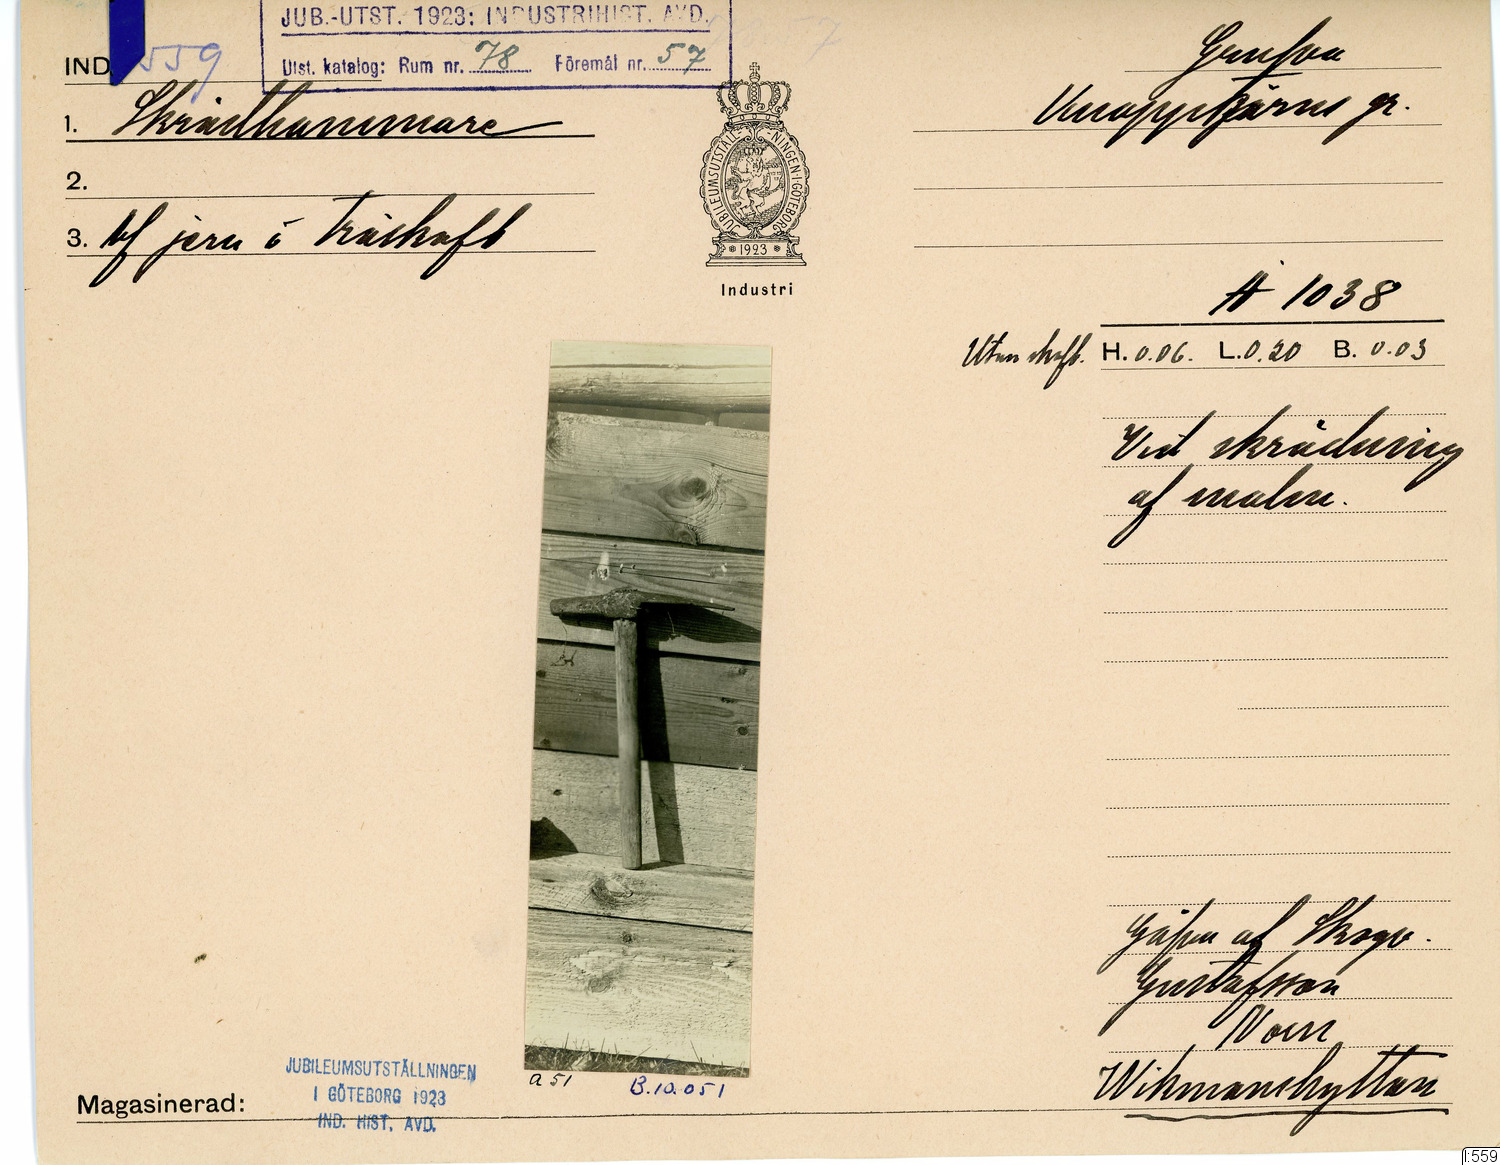 JUB.-UTST. 1923: INDUSTRIHIST. AVD.
Utst. katalog: Rum nr. 78 Föremål nr. 57
IND. 559
1. Skrädhammare
2.
3. Af jern i träskaft
JUBILEUMSUTSTÄLL-NINGEN·I·GÖTEBORG
* 1923 *
Industri
gr.
A 1038
Utan skaft. H. 0.06. L. 0.20 B. 0.03
Vid skrädning
af malm.
Gåfva af Skogv.
Gustafsson
Norr
Wikmanshyttan
a 51
B.10.051
JUBILEUMSUTSTÄLLNINGEN
I GÖTEBORG 1923
IND. HIST. AVD.
Magasinerad:
I:559